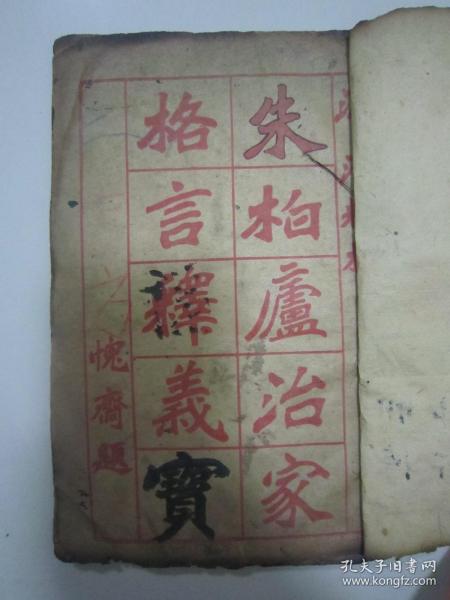 朱柏廬治家
格言釋義寶
愧齋題
孔夫子旧书网
www.kongfz.com